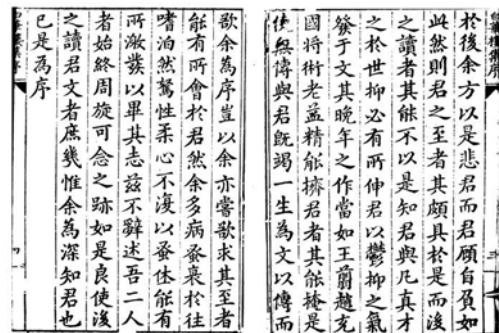 於後余方以是悲君而君顧自負如
此然則君之至者其頗具於是而後
之讀者其能不以是知君與凡真才
之於世抑必有所伸君以鬱抑之氣
發于文其晚年之作當如王翦趙充
國將術老益精能擯君者其能掩是
使無傳與君旣竭一生為文以傳而
歌余為序豈以余亦嘗歌求其至者
能有所會於君然余多病蚤衰於往
嗜泊然驚性柔心不復以蚤佅能有
所激發以畢其志茲不辭述吾二人
者始終周旋可念之跡如是良使後
之讀君文者庶幾惟余為深知君也
已是為序